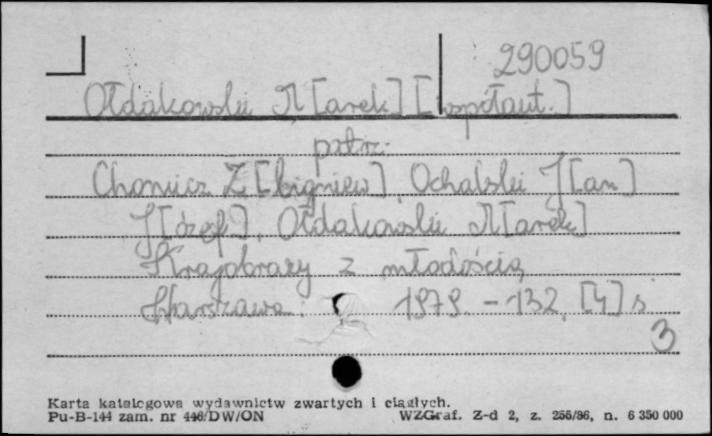 290059
Ołdakowski M[arek] [współaut.]
patrz:
Chomicz Z[bigniew], Ochalski J[an]
J[ózef], Ołdakowski M[arek]
Krajobrazy z młodością
Warszawa. 1979. - 132, [4] s
3
Karta katalogowa wydawnictw zwartych i ciągłych.
Pu-B-144 zam. nr 446/DW/ON WZGraf. Z-d 2, z. 256/86, n. 6 350 000